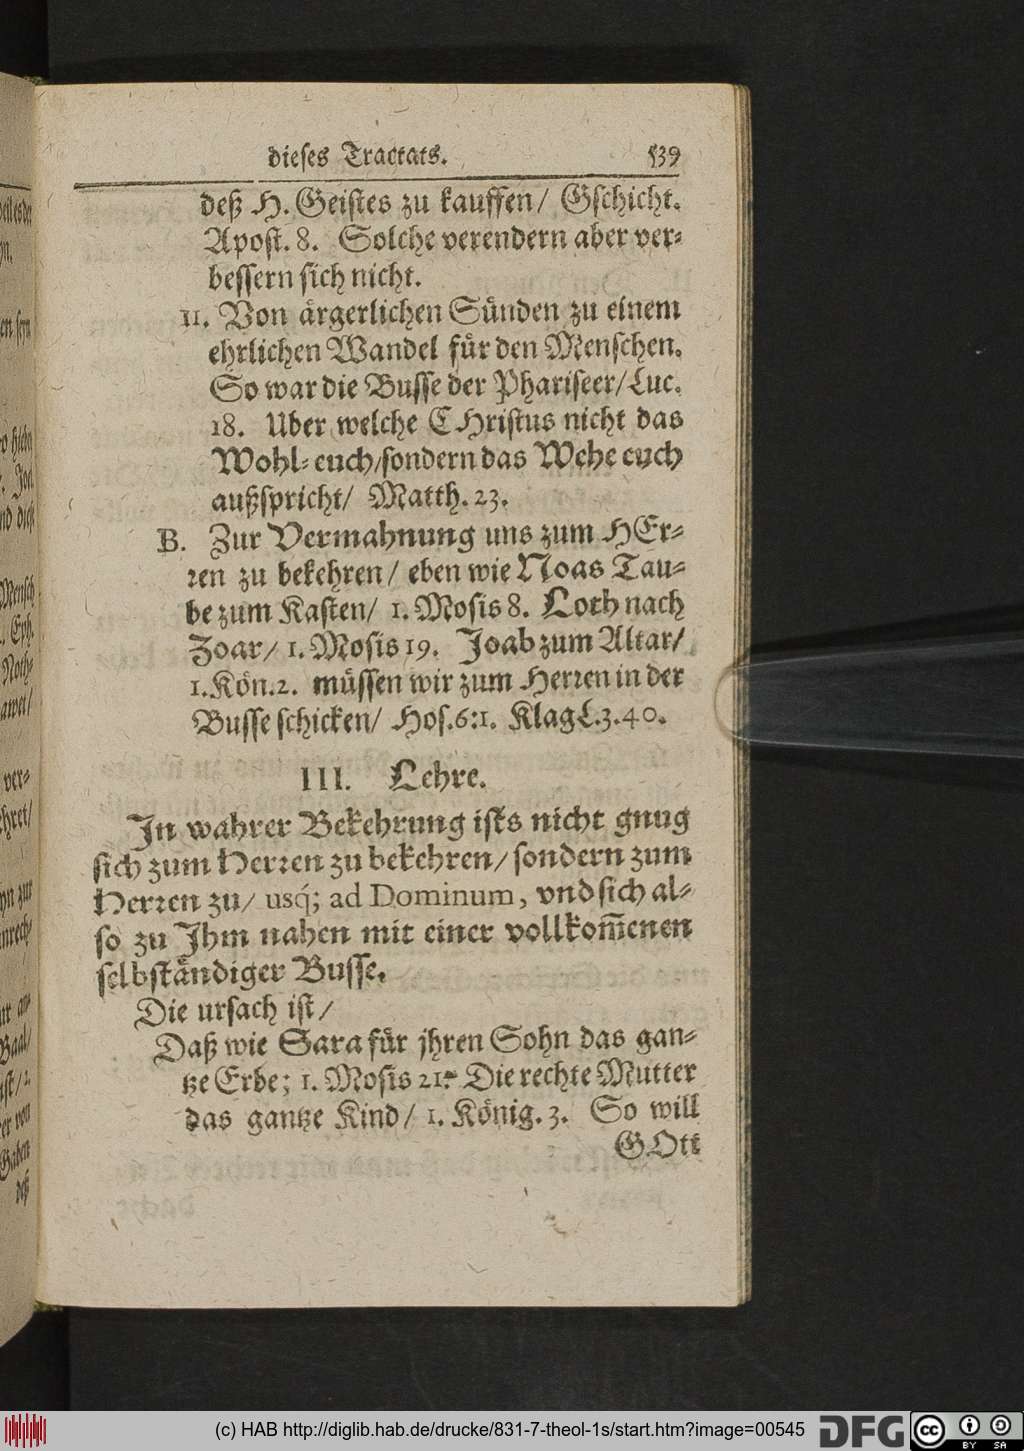 dieses Tractats. 539
deß H. Geistes zu kauffen/ Gschicht.
Apost. 8. Solche verendern aber ver⸗
bessern sich nicht.
11. Von ärgerlichen Sünden zu einem
ehrlichen Wandel für den Menschen.
So war die Busse der Phariseer/ Luc.
18. Uber welche CHristus nicht das
Wohl⸗ euch/ sondern das Wehe euch
außspricht/ Matth. 23.
B. Zur Vermahnung uns zum HEr⸗
ren zu bekehren/ eben wie Noas Tau⸗
be zum Kasten/ 1. Mosis 8. Loth nach
Zoar/ 1. Mosis 19. Joab zum Altar/
1. Kön. 2. müssen wir zum Herren in der
Busse schicken/ Hos. 6:1. Klag L. 3. 40.
III. Lehre.
In wahrer Bekehrung ists nicht gnug
sich zum Herren zu bekehren/ sondern zum
Herren zu/ usq́; ad Dominum, vnd sich al⸗
so zu Ihm nahen mit einer vollkom̃enen
selbständiger Busse.
Die ursach ist/
Daß wie Sara für jhren Sohn das gan⸗
tze Erbe; 1. Mosis 21. Die rechte Mutter
das gantze Kind/ 1. König. 3. So will
GOtt
(c) HAB http://diglib.hab.de/drucke/831-7-theol-1s/start.htm?image=00545
DFG
cc BY SA